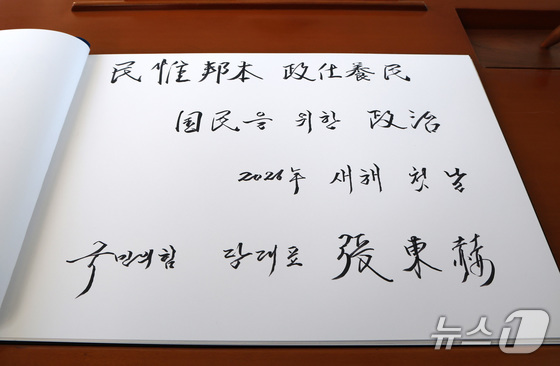 民惟邦本 政在養民
国民을 위한 政治
2026年 새해 첫날
국민의힘 당대표 張東赫
뉴스1